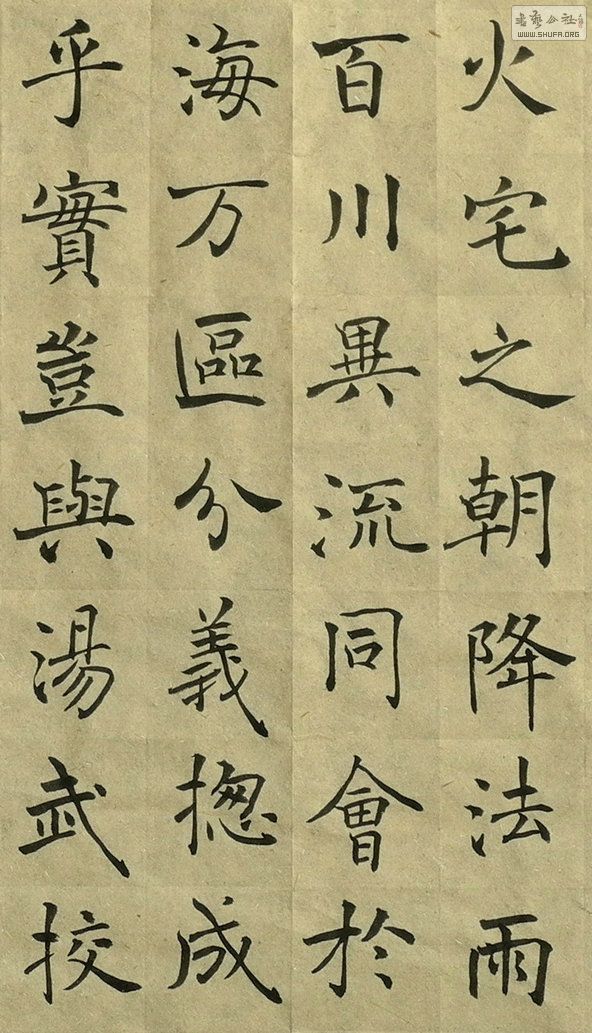 火宅之朝降法雨
百川異流同會於
海万區分義揔成
乎實豈與湯武挍
書藝公社
WWW.SHUFA.ORG